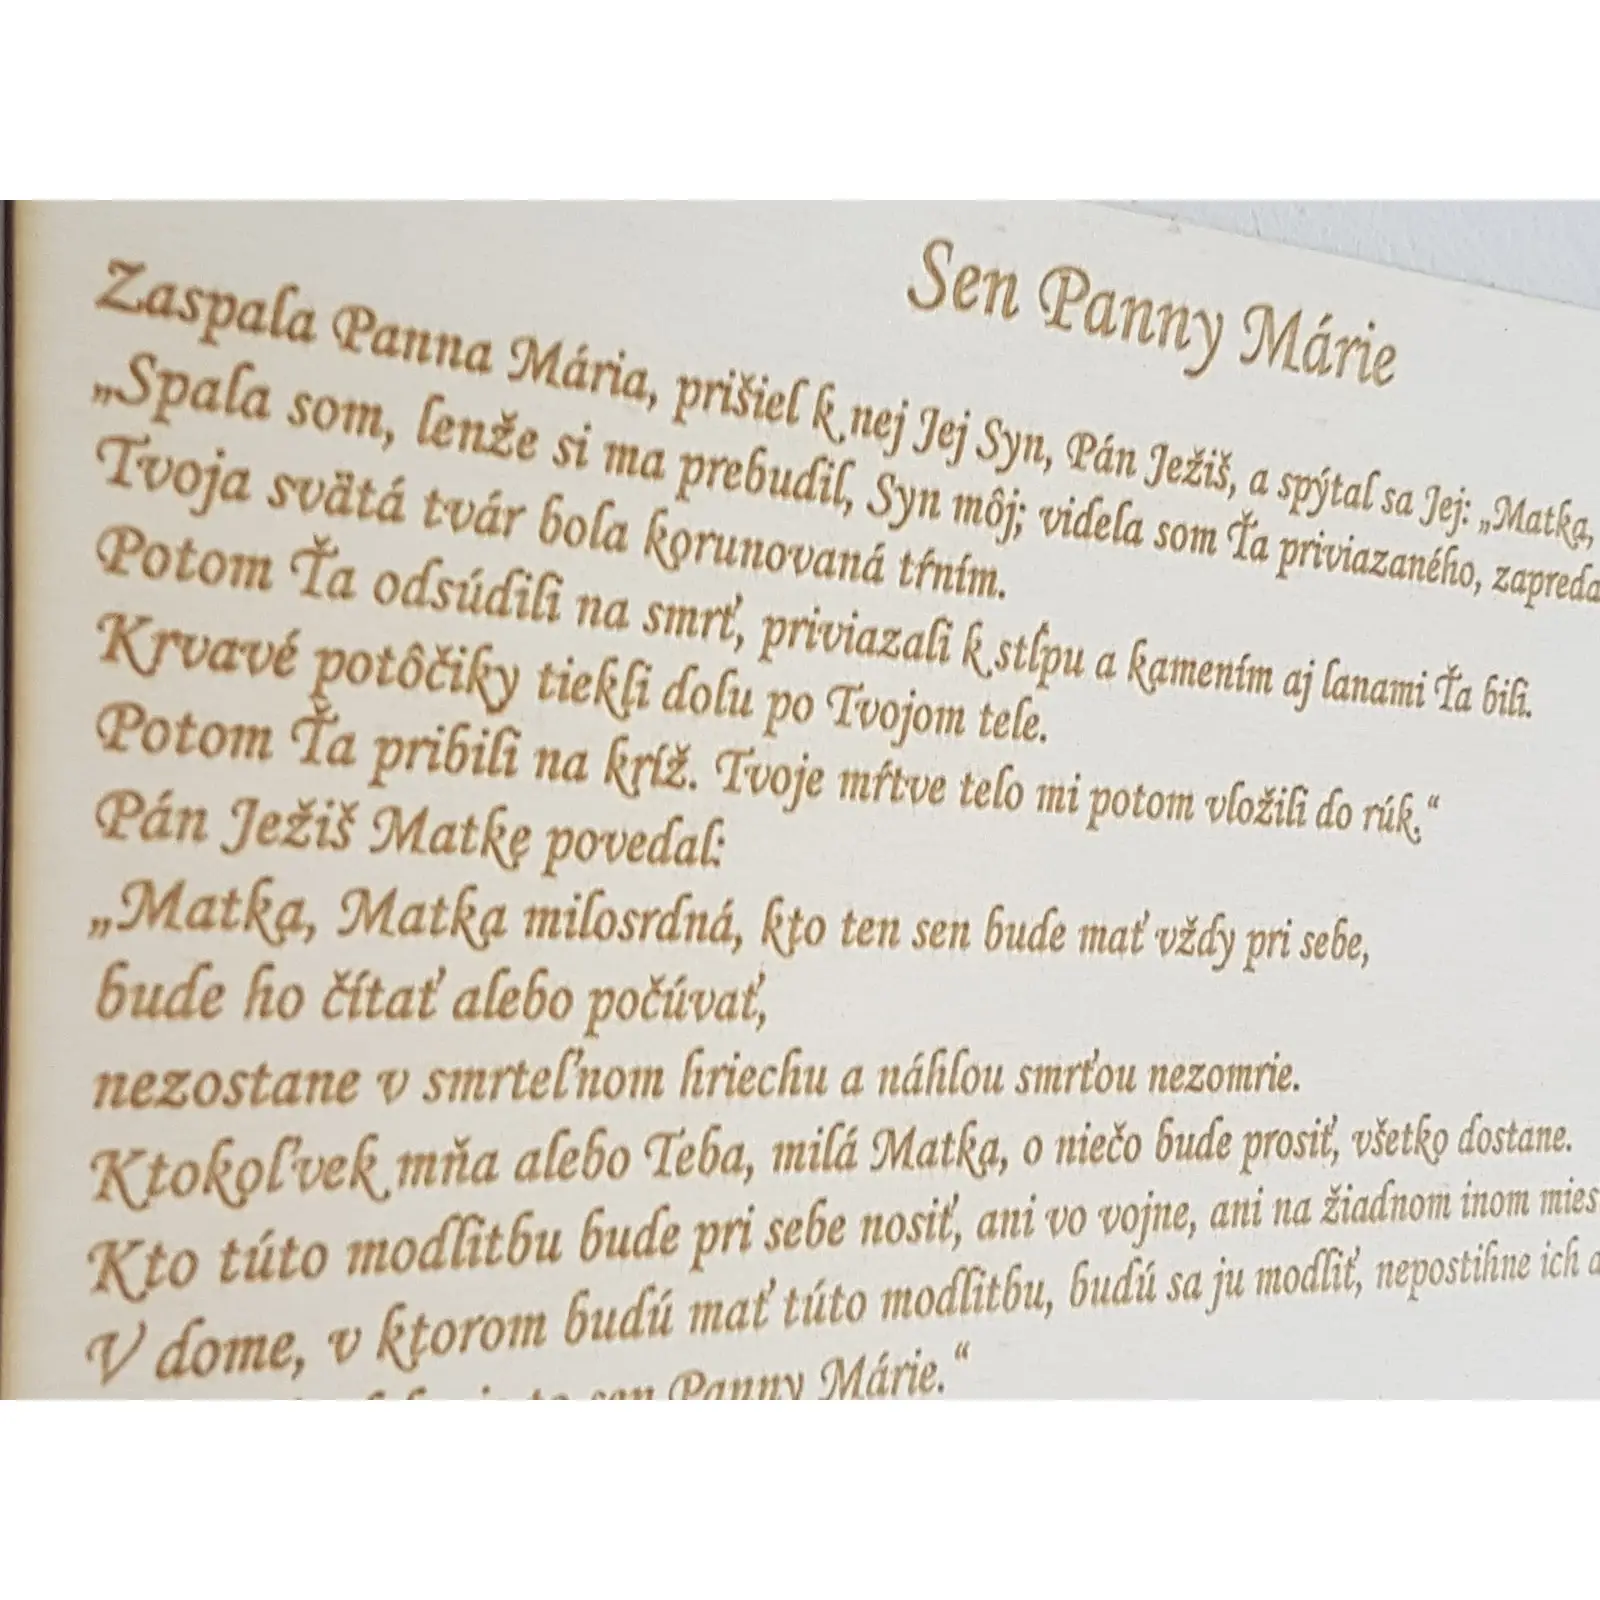 Sen Panny Márie
Zaspala Panna Mária, prišiel k nej Jej Syn, Pán Ježiš, a spýtal sa Jej: „Matka,
„Spala som, lenže si ma prebudil, Syn môj; videla som Ťa priviazaného, zapreda
Tvoja svätá tvár bola korunovaná tŕním.
Potom Ťa odsúdili na smrť, priviazali k stĺpu a kamením aj lanami Ťa bili.
Krvavé potôčiky tiekli dolu po Tvojom tele.
Potom Ťa pribili na kríž. Tvoje mŕtve telo mi potom vložili do rúk.“
Pán Ježiš Matke povedal:
„Matka, Matka milosrdná, kto ten sen bude mať vždy pri sebe,
bude ho čítať alebo počúvať,
nezostane v smrteľnom hriechu a náhlou smrťou nezomrie.
Ktokoľvek mňa alebo Teba, milá Matka, o niečo bude prosiť, všetko dostane.
Kto túto modlitbu bude pri sebe nosiť, ani vo vojne, ani na žiadnom inom mies
V dome, v ktorom budú mať túto modlitbu, budú sa ju modliť, nepostihne ich a
sen Panny Márie.“